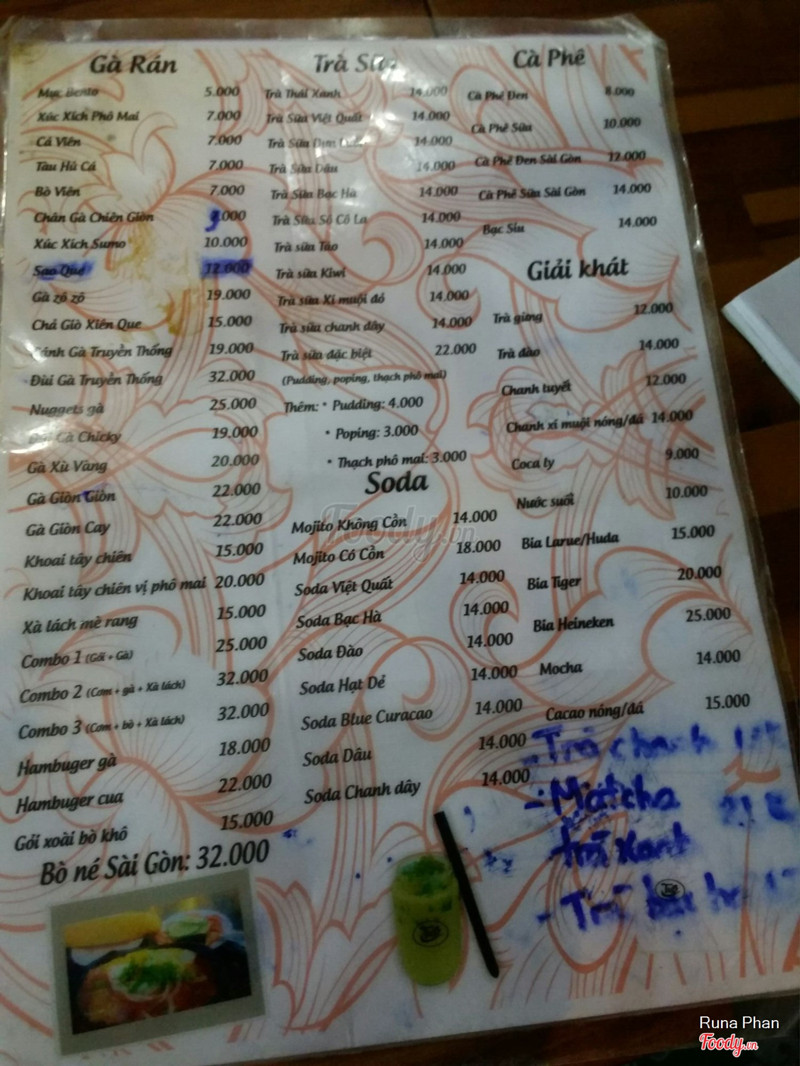 Gà Rán
Mực Bento 5.000
Xúc Xích Phô Mai 7.000
Cá Viên 7.000
Tàu Hủ Cá 7.000
Bò Viên 7.000
Chân Gà Chiên Giòn 9.000
Xúc Xích Sumo 10.000
Sao Quế 12.000
Gà zô zô 19.000
Chả Giò Xiên Que 15.000
Cánh Gà Truyền Thống 19.000
Đùi Gà Truyền Thống 32.000
Nuggets gà 25.000
Gà Chicky 19.000
Gà Xù Vàng 20.000
Gà Giòn Giòn 22.000
Gà Giòn Cay 22.000
Khoai tây chiên 15.000
Khoai tây chiên vị phô mai 20.000
Xà lách mè rang 15.000
Combo 1 (Gỏi + Gà) 25.000
Combo 2 (Cơm + gà + Xà lách) 32.000
Combo 3 (Cơm + bò + Xà lách) 32.000
Hambuger gà 18.000
Hambuger cua 22.000
Gỏi xoài bò khô 15.000
Bò né Sài Gòn: 32.000
Trà Sữa
Trà Thái Xanh 14.000
Trà Sữa Việt Quất 14.000
Trà Sữa 14.000
Trà Sữa Dâu 14.000
Trà Sữa Bạc Hà 14.000
Trà Sữa Sô Cô La 14.000
Trà sữa Táo 14.000
Trà sữa Kiwi 14.000
Trà sữa Xí muội đỏ 14.000
Trà sữa chanh dây 14.000
Trà sữa đặc biệt 22.000
(Pudding, poping, thạch phô mai)
Thêm: * Pudding: 4.000
* Poping: 3.000
* Thạch phô mai: 3.000
Soda
Mojito Không Cồn 14.000
Mojito Có Cồn 18.000
Soda Việt Quất 14.000
Soda Bạc Hà 14.000
Soda Đào 14.000
Soda Hạt Dẻ 14.000
Soda Blue Curacao 14.000
Soda Dâu 14.000
Soda Chanh dây 14.000
Cà Phê
Cà Phê Đen 8.000
Cà Phê Sữa 10.000
Cà Phê Đen Sài Gòn 12.000
Cà Phê Sữa Sài Gòn 14.000
Bạc Sỉu 14.000
Giải khát
Trà gừng 12.000
Trà đào 14.000
Chanh tuyết 12.000
Chanh xí muội nóng/đá 14.000
Coca ly 9.000
Nước suối 10.000
Bia Larue/Huda 15.000
Bia Tiger 20.000
Bia Heineken 25.000
Mocha 14.000
Cacao nóng/đá 15.000
- Trà chanh
- Matcha
trà xanh
- Trà bạc hà
Foody.vn
Runa Phan
Foody.vn